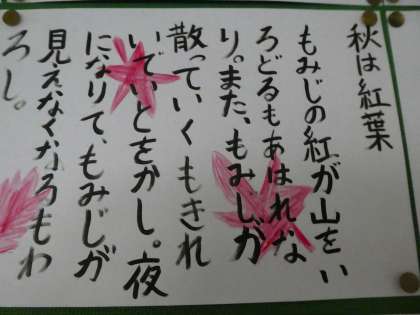 秋は紅葉
もみじの紅が山をい
ろどるもあはれな
り。また、もみじが
散っていくもきれ
いでいとをかし。夜
になりて、もみじが
見えなくなるもわ
ろし。